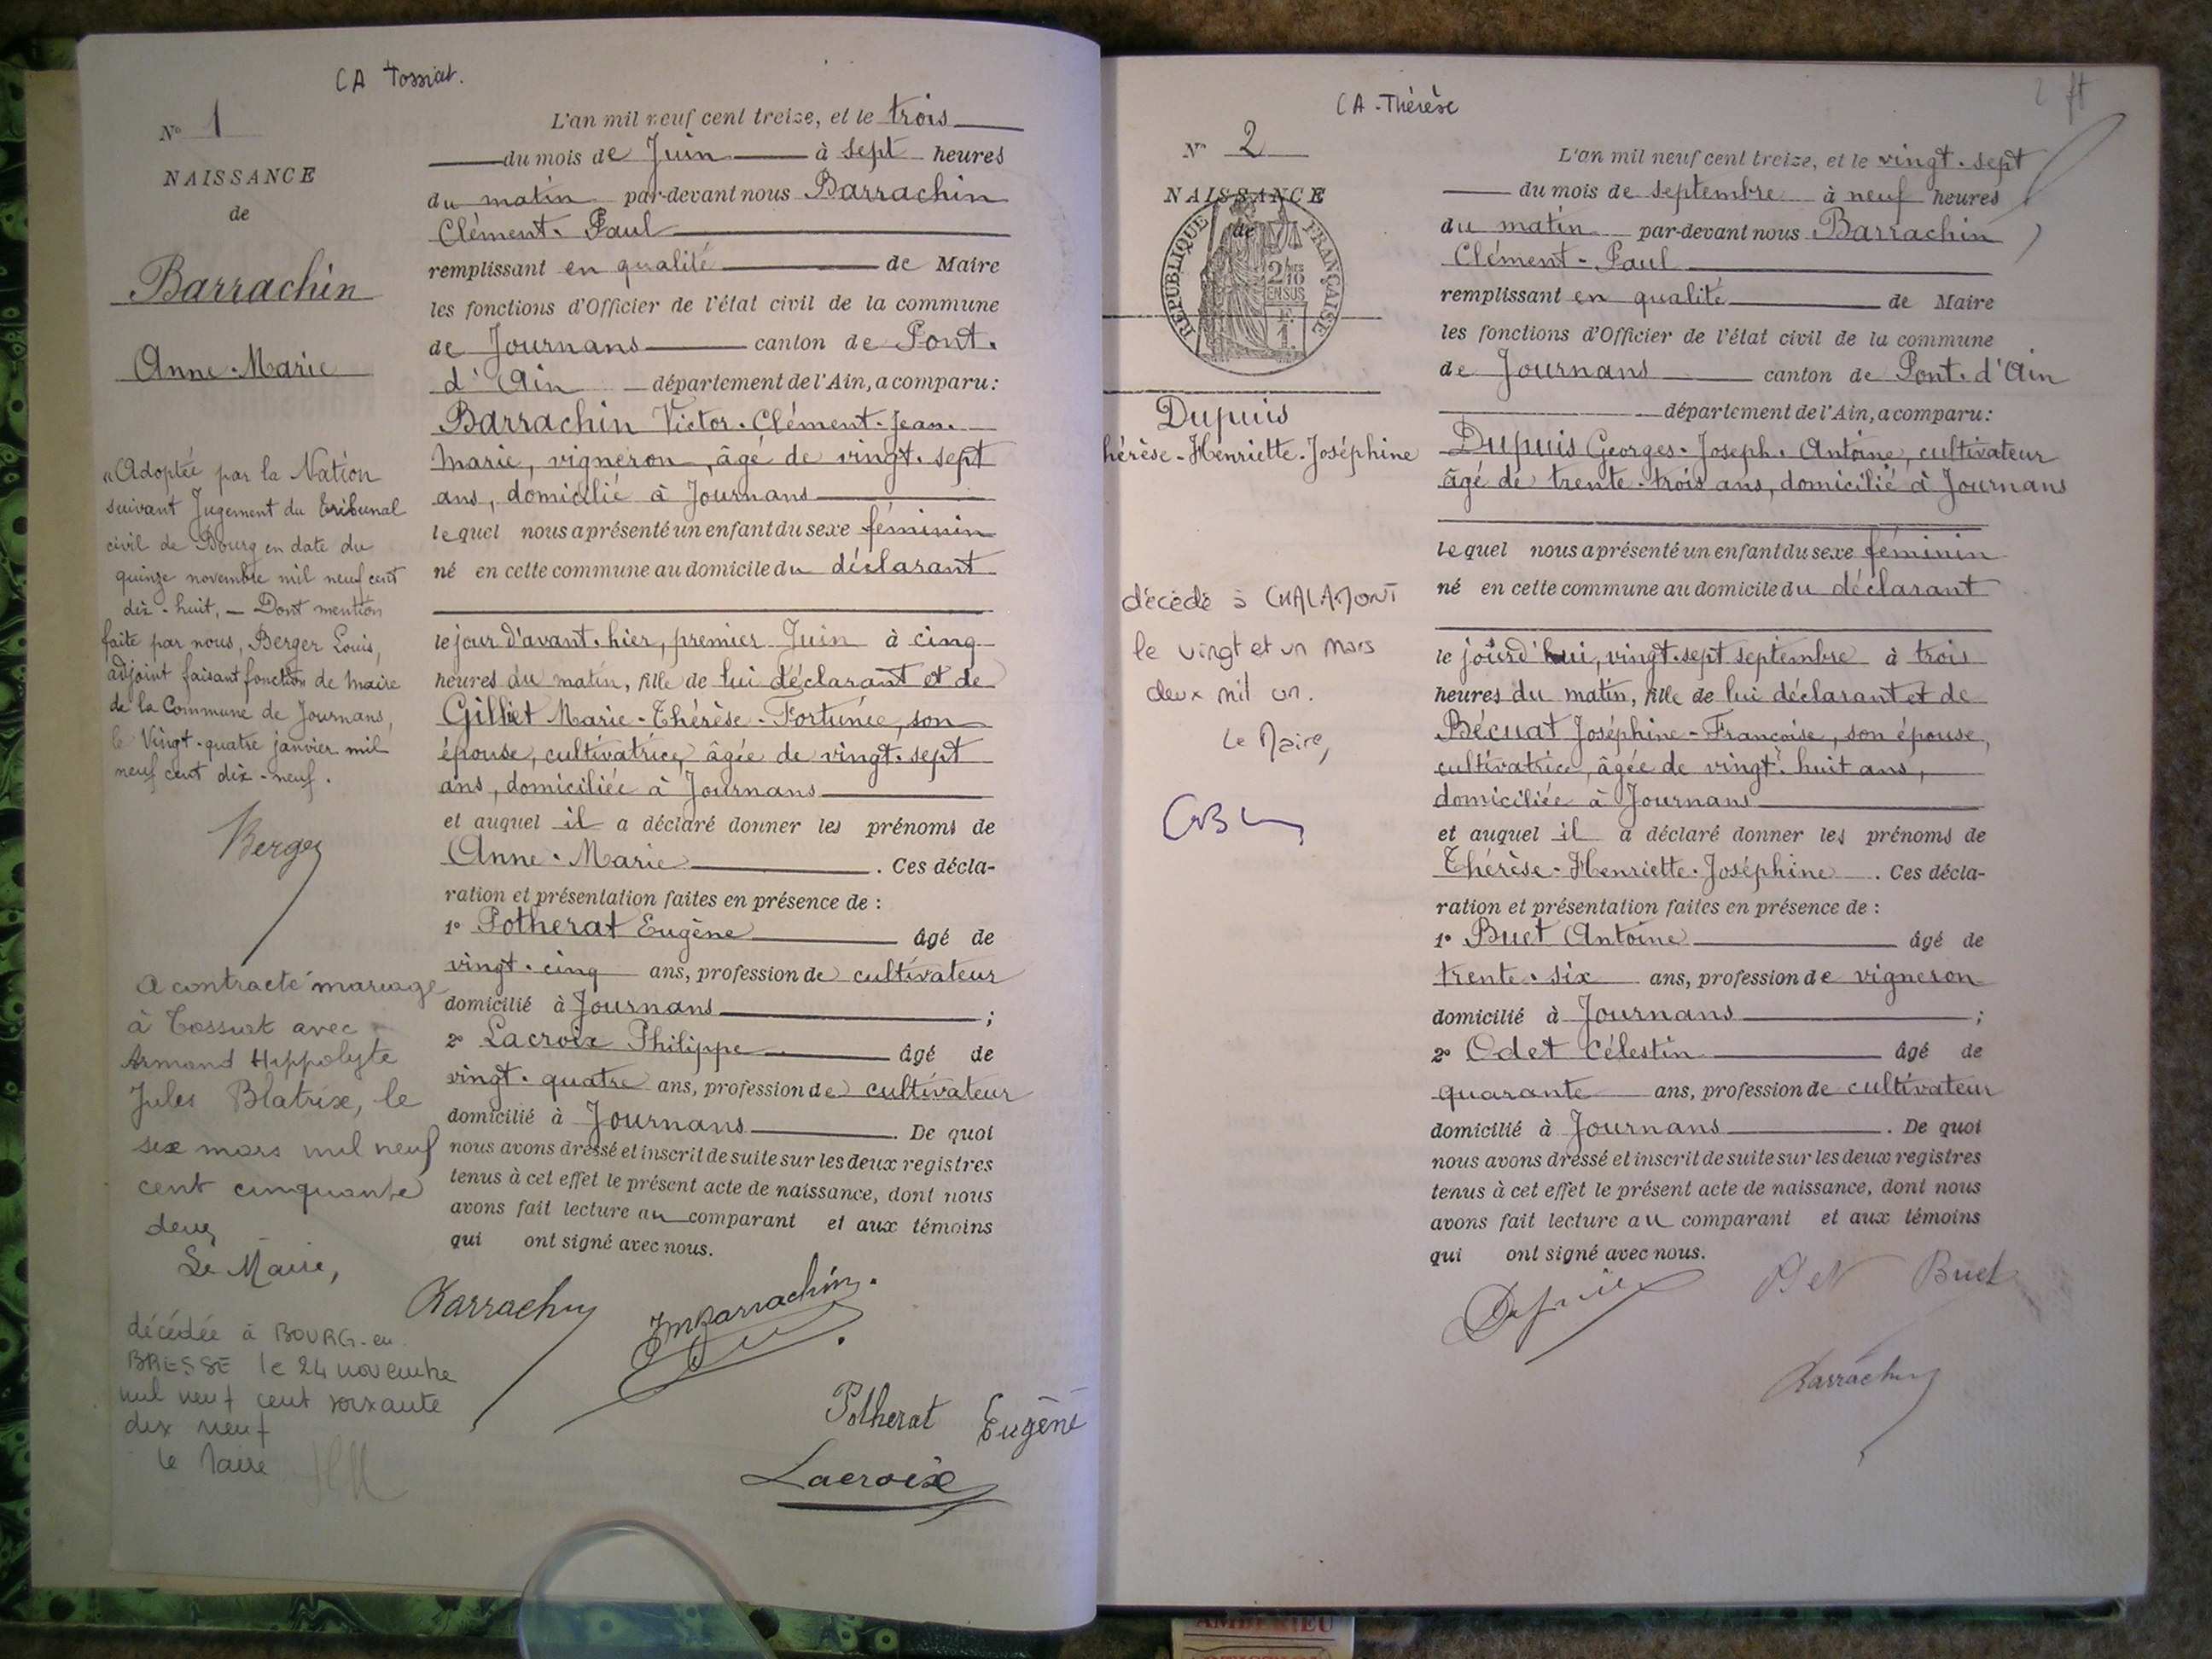 CA Tossiat.
N° 1
NAISSANCE
de
Barrachin
Anne-Marie
"Adoptée par la Nation
suivant Jugement du Tribunal
civil de Bourg en date du
quinze novembre mil neuf cent
dix-huit, — Dont mention
faite par nous, Berger Louis,
adjoint faisant fonction de Maire
de la Commune de Journans,
le Vingt-quatre janvier mil
neuf cent dix-neuf.
Berger
a contracté mariage
à Tossiat avec
Armand Hippolyte
Jules Blatrix, le
six mars mil neuf
cent cinquante
deux
Le Maire,
décédée à BOURG-en
BRESSE le 24 novembre
mil neuf cent soixante
dix neuf
le Maire
L'an mil neuf cent treize, et le trois
du mois de Juin à sept heures
du matin par-devant nous Barrachin
Clément-Paul
remplissant en qualité de Maire
les fonctions d'Officier de l'état civil de la commune
de Journans canton de Pont-
d'Ain département de l'Ain, a comparu:
Barrachin Victor-Clément-Jean-
Marie, vigneron, âgé de vingt-sept
ans, domicilié à Journans
lequel nous a présenté un enfant du sexe féminin
né en cette commune au domicile du déclarant
le jour d'avant-hier, premier Juin à cinq
heures du matin, fille de lui déclarant et de
Gilliet Marie-Thérèse-Fortunée, son
épouse, cultivatrice, âgée de vingt-sept
ans, domiciliée à Journans
et auquel il a déclaré donner les prénoms de
Anne-Marie. Ces décla-
ration et présentation faites en présence de :
1° Potherat Eugène âgé de
vingt-cinq ans, profession de cultivateur
domicilié à Journans ;
2° Lacroix Philippe âgé de
vingt-quatre ans, profession de cultivateur
domicilié à Journans. De quoi
nous avons dressé et inscrit de suite sur les deux registres
tenus à cet effet le présent acte de naissance, dont nous
avons fait lecture au comparant et aux témoins
qui ont signé avec nous.
Barrachin JMBarrachin.
Potherat Eugène
Lacroix
CA-Thérèse
N° 2
NAISSANCE
de
RÉPUBLIQUE FRANÇAISE
2/10
EN SUS
Dupuis
hérèse-Henriette-Joséphine
décédé à CHALAMONT
le vingt et un mars
deux mil un.
Le Maire,
L'an mil neuf cent treize, et le vingt-sept
du mois de septembre à neuf heures
du matin par-devant nous Barrachin
Clément-Paul
remplissant en qualité de Maire
les fonctions d'Officier de l'état civil de la commune
de Journans canton de Pont-d'Ain
département de l'Ain, a comparu:
Dupuis Georges-Joseph-Antoine, cultivateur
âgé de trente-trois ans, domicilié à Journans
lequel nous a présenté un enfant du sexe féminin
né en cette commune au domicile du déclarant
le jourd'hui, vingt-sept septembre à trois
heures du matin, fille de lui déclarant et de
Bécuat Joséphine-Françoise, son épouse,
cultivatrice, âgée de vingt-huit ans,
domiciliée à Journans
et auquel il a déclaré donner les prénoms de
Thérèse-Henriette-Joséphine. Ces décla-
ration et présentation faites en présence de :
1° Buet Antoine âgé de
trente-six ans, profession de vigneron
domicilié à Journans ;
2° Odet Célestin âgé de
quarante ans, profession de cultivateur
domicilié à Journans. De quoi
nous avons dressé et inscrit de suite sur les deux registres
tenus à cet effet le présent acte de naissance, dont nous
avons fait lecture au comparant et aux témoins
qui ont signé avec nous.
Dupuis Odet Buet
Barrachin
AMBERIEU